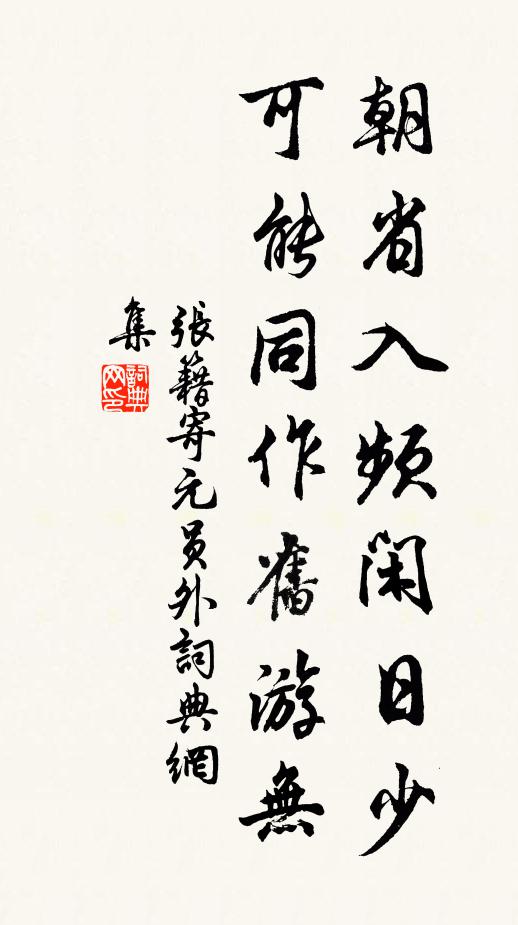 朝省入頻閑日少
可能同作舊游無
張籍寄元員外詞典網
集
詞典
网印